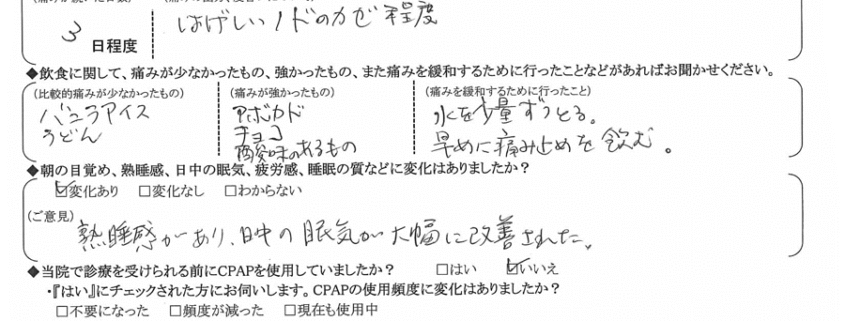 3 日程度 はげしいノドのカゼ程度
◆飲食に関して、痛みが少なかったもの、強かったもの、また痛みを緩和するために行ったことなどがあればお聞かせください。
(比較的痛みが少なかったもの) (痛みが強かったもの) (痛みを緩和するために行ったこと)
バニラアイス アボカド 水を少量ずつとる。
うどん チョコ 早めに痛み止めを飲む。
酸味のあるもの
◆朝の目覚め、熟睡感、日中の眠気、疲労感、睡眠の質などに変化はありましたか?
☑変化あり □変化なし □わからない
(ご意見)
熟睡感があり、日中の眠気が大幅に改善された。
◆当院で診療を受けられる前にCPAPを使用していましたか? □はい ☑いいえ
・『はい』にチェックされた方にお伺いします。CPAPの使用頻度に変化はありましたか?
□不要になった □頻度が減った □現在も使用中